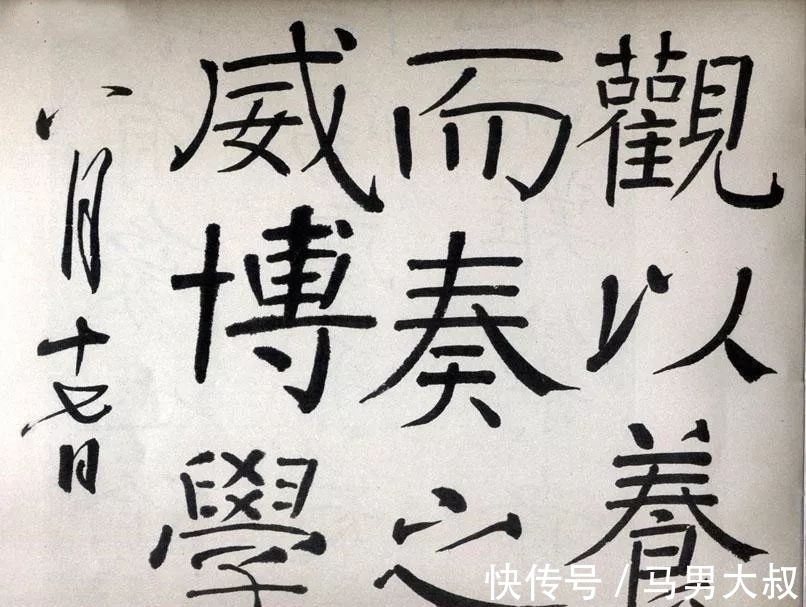 觀以養
而奏之
威博學
八月十七日
快传号 / 马男大叔